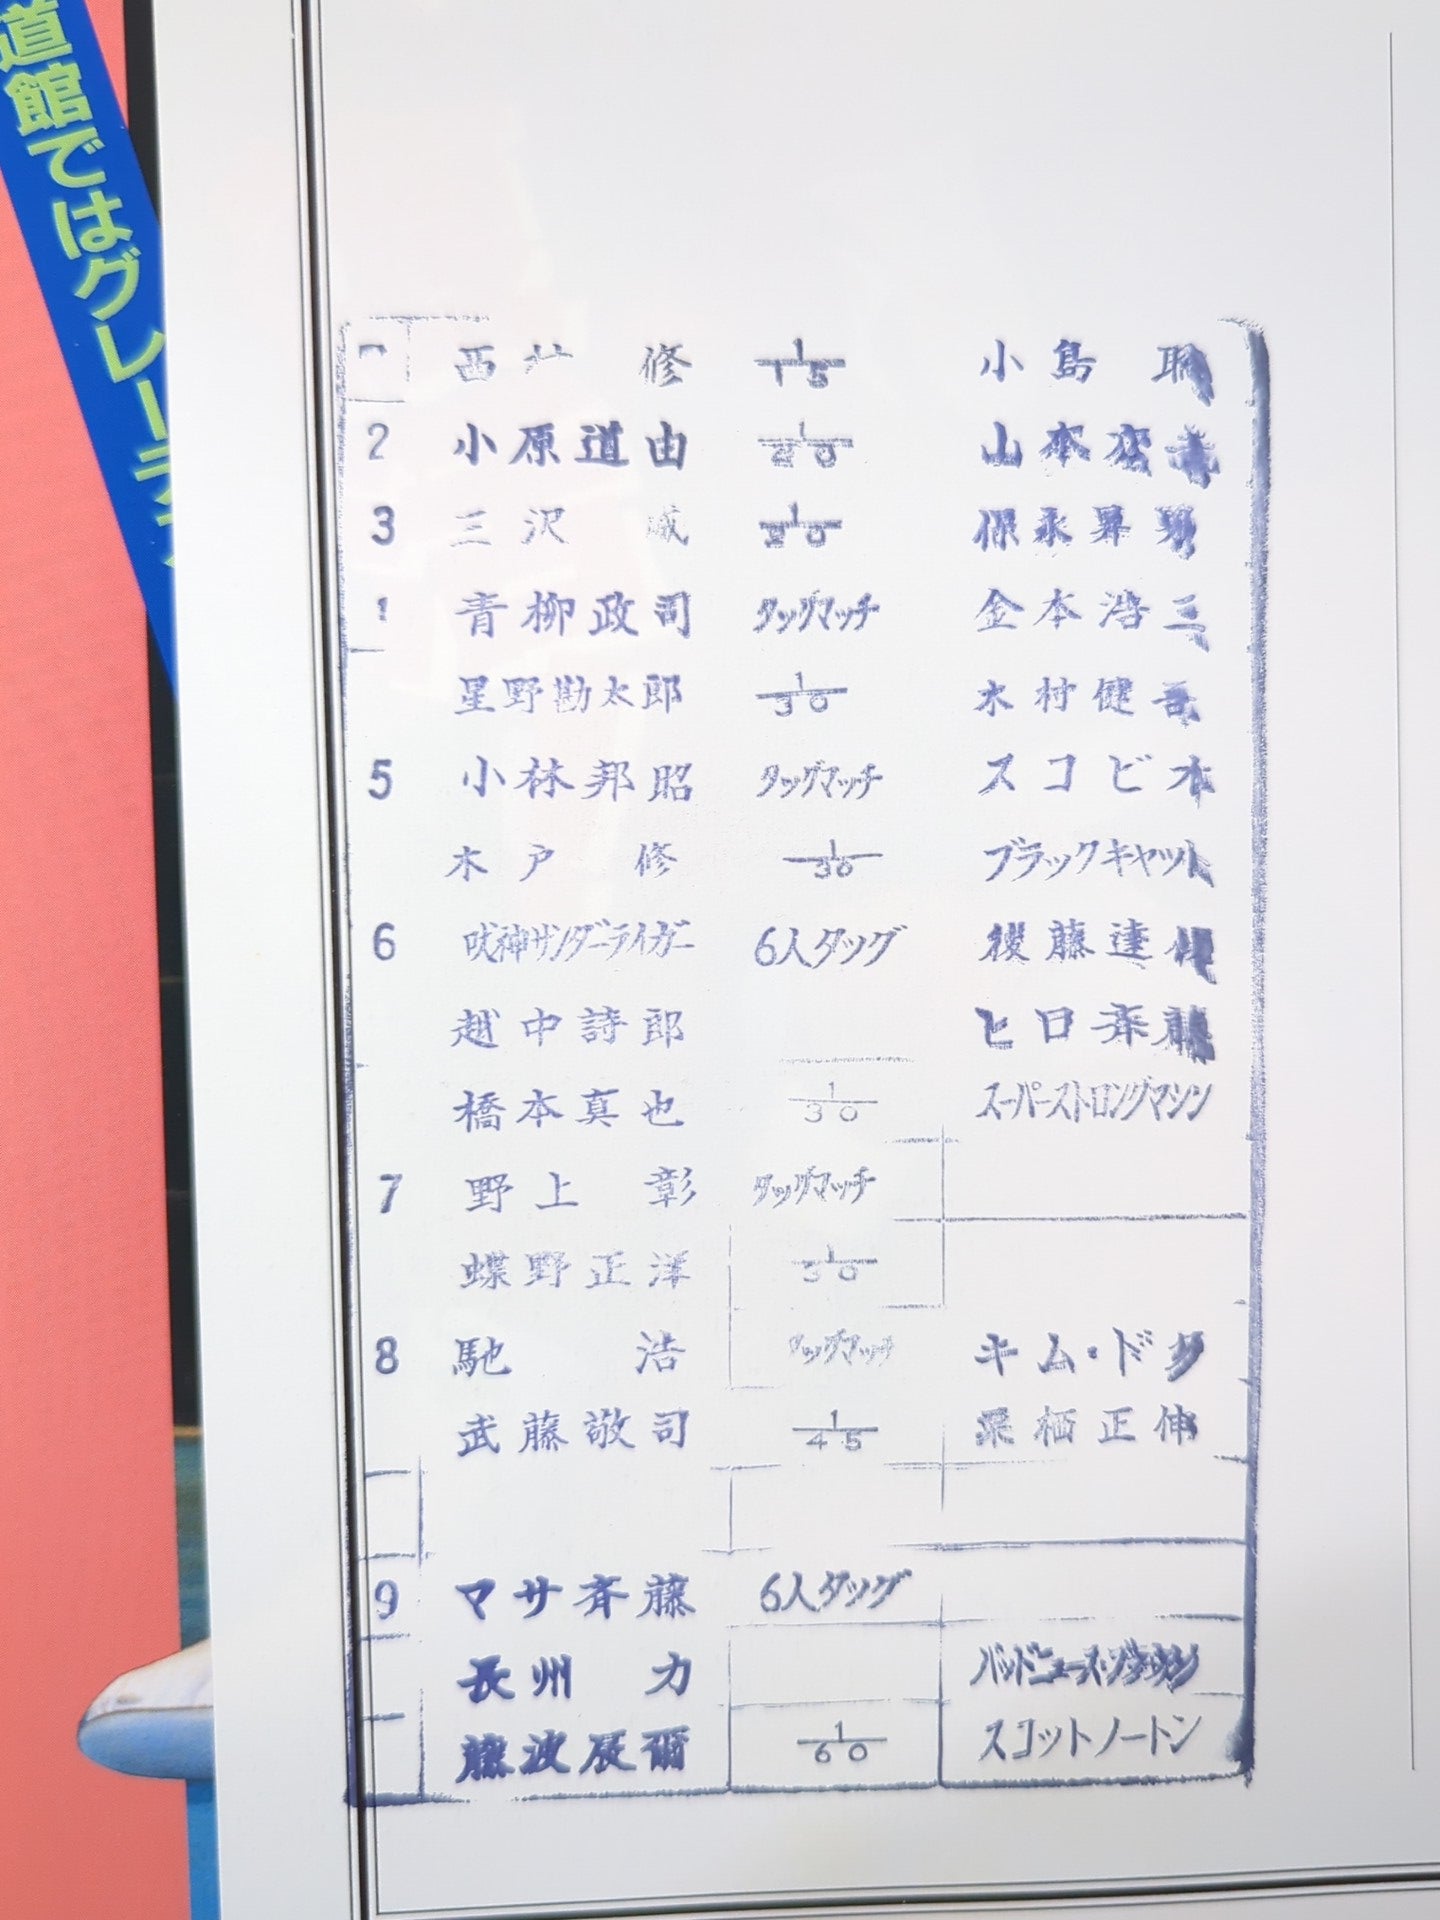 道館ではグレーテ
西 修 1/15 小島
2 小原道由 1/20 山本
3 三沢 威 1/20 保永昇男
青柳政司 タッグマッチ 金本浩三
星野勘太郎 1/30 木村健吾
5 小林邦昭 タッグマッチ スコピオ
木戸 修 1/30 ブラックキャット
6 獣神サンダーライガー 6人タッグ 後藤達俊
越中詩郎 ヒロ斉藤
橋本真也 1/30 スーパーストロングマシン
7 野上 彰 タッグマッチ
蝶野正洋 1/30
8 馳 浩 タッグマッチ キム・ドク
武藤敬司 1/45 栗栖正伸
9 マサ斉藤 6人タッグ
長州 力 バッドニュース・ブラウン
藤波辰爾 1/60 スコットノートン